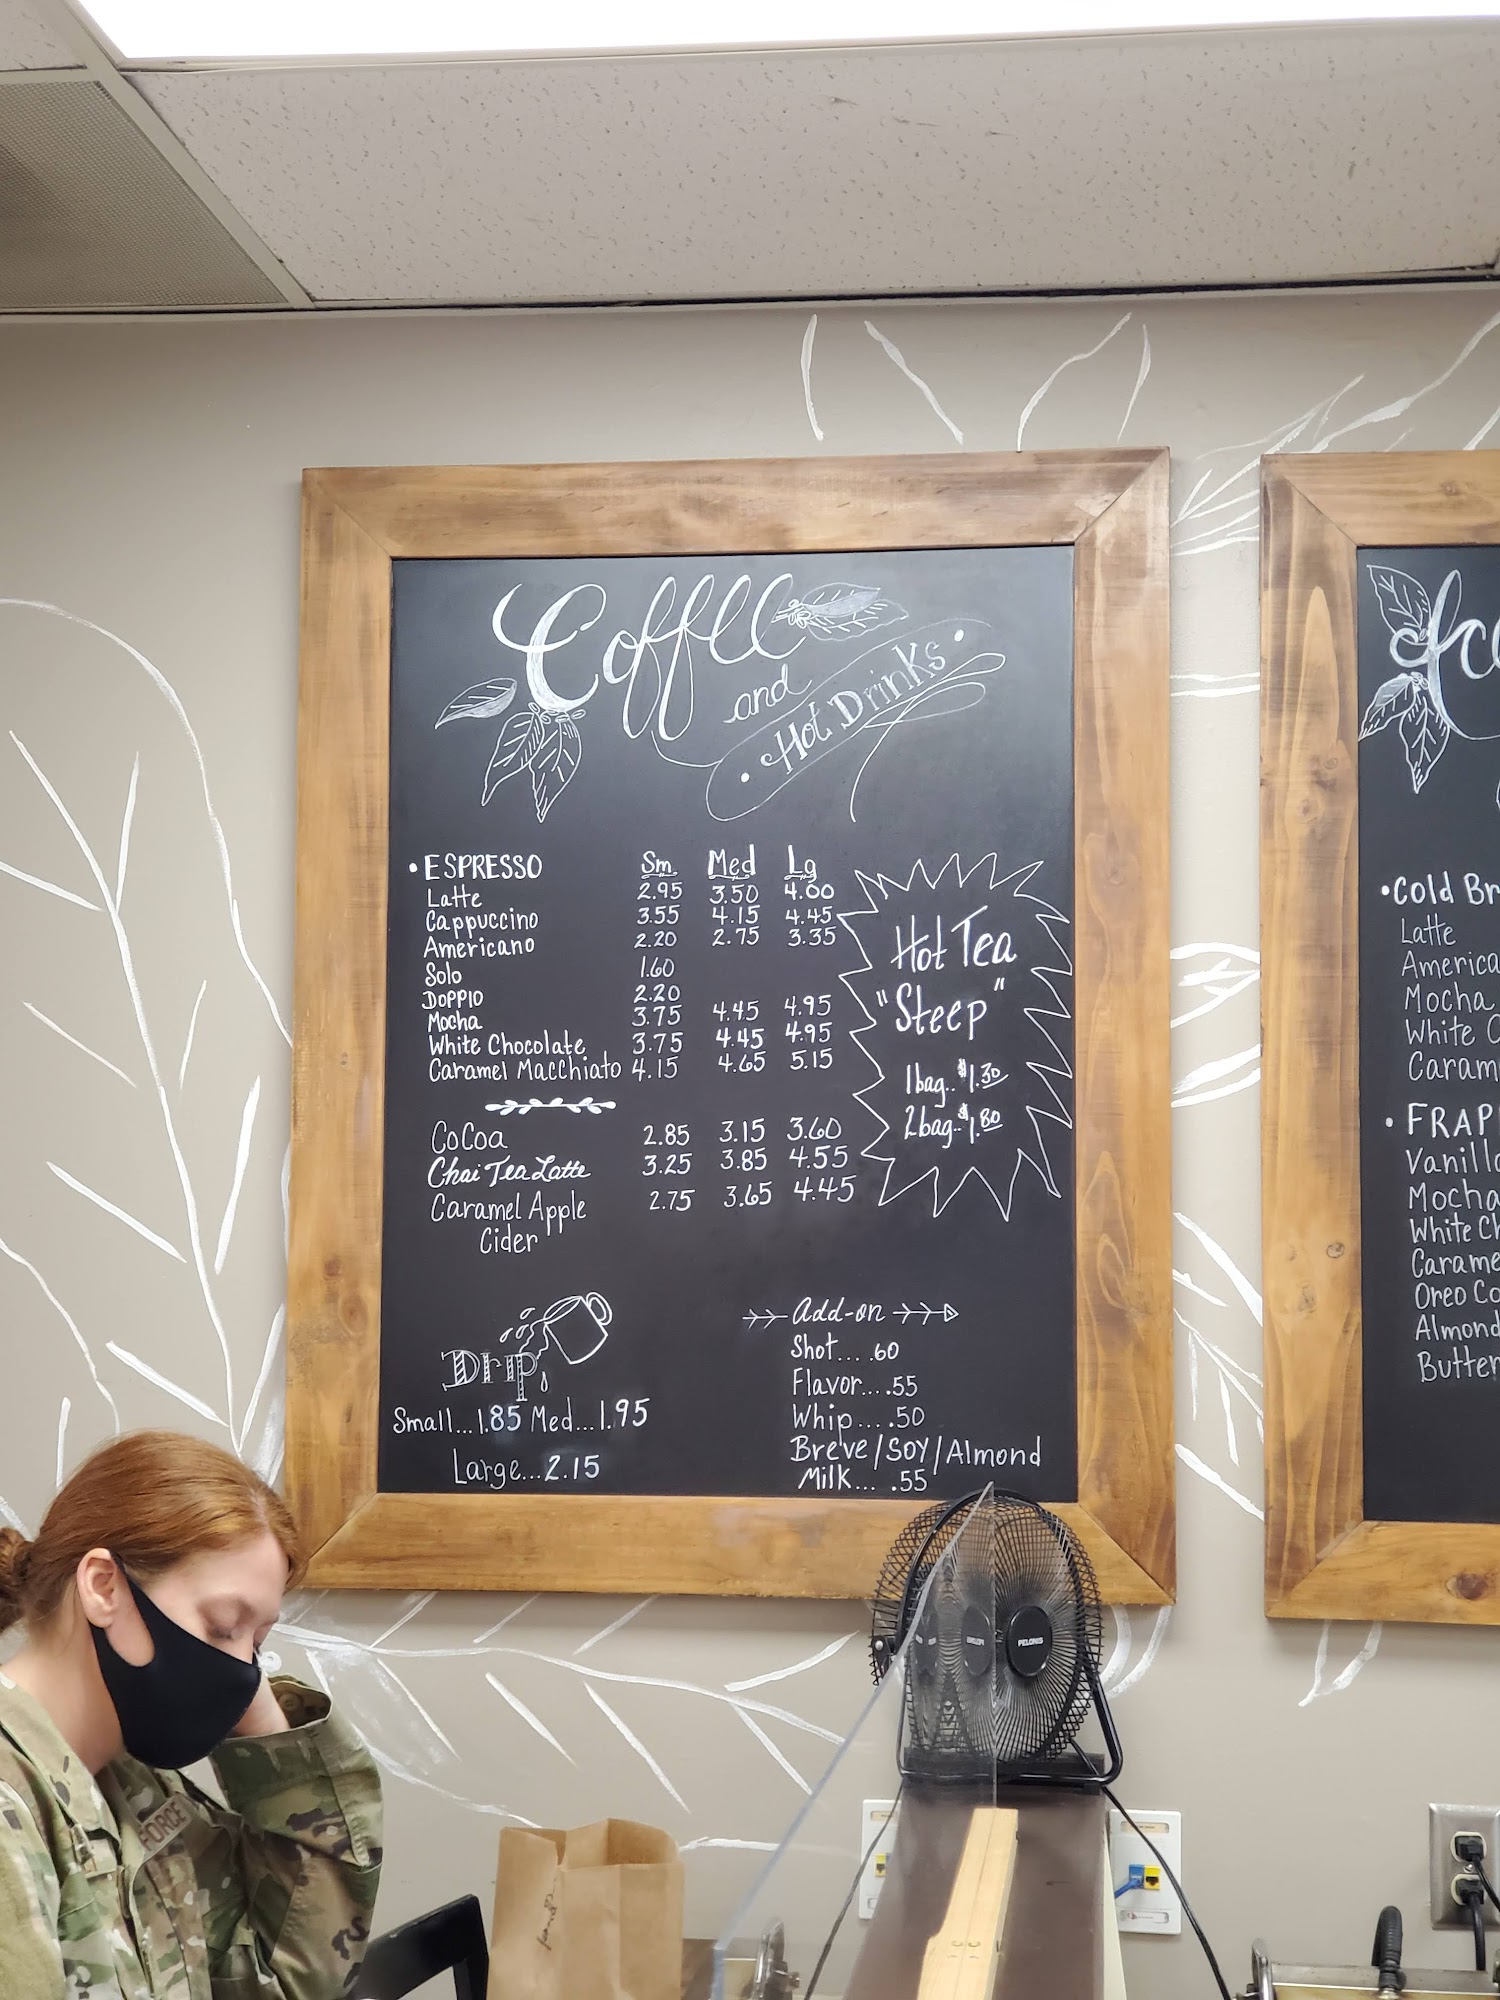 Coffee
and
• Hot Drinks •
• ESPRESSO Sm. Med Lg
Latte 2.95 3.50 4.00
Cappuccino 3.55 4.15 4.45
Americano 2.20 2.75 3.35
Solo 1.60
Doppio 2.20
Mocha 3.75 4.45 4.95
White Chocolate 3.75 4.45 4.95
Caramel Macchiato 4.15 4.65 5.15
CoCoa 2.85 3.15 3.60
Chai Tea Latte 3.25 3.85 4.55
Caramel Apple 2.75 3.65 4.45
Cider
Hot Tea
"Steep"
1 bag..$1.30
2 bag..$1.80
Drip
Small...1.85 Med...1.95
Large...2.15
Add-on
Shot.... .60
Flavor... .55
Whip.... .50
Breve/SOY/Almond
Milk... .55
•Cold Br
Latte
America
Mocha
White C
Caram
• FRAP
Vanilla
Mocha
White Ch
Carame
Oreo Co
Almond
Butter
FORCE
PELONIS